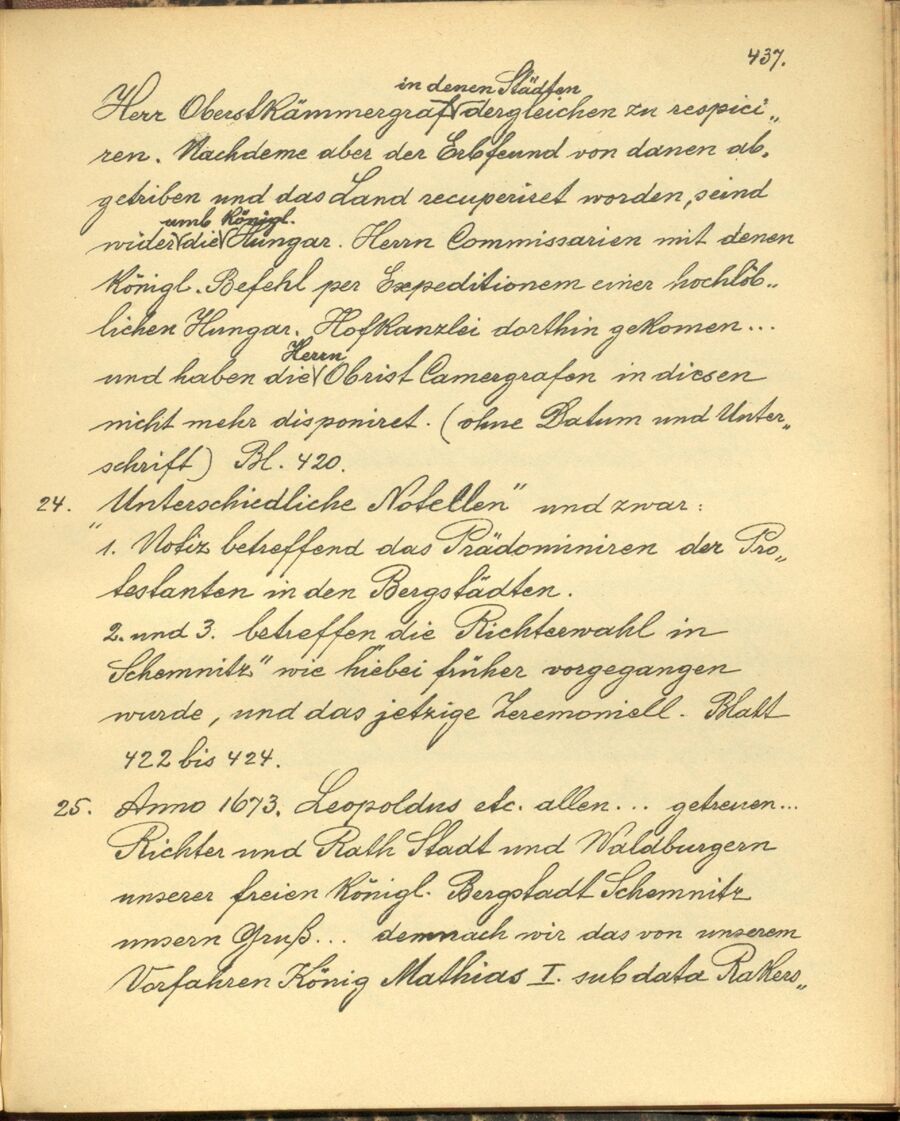 437.
in denen Städten
Herr Oberstkämmergraf dergleichen zu respici„
ren. Nachdeme aber der Erbfeund von danen ab„
getriben und das Land recuperiret worden, seind
umb königl.
wider die Hungar. Herrn Commissarien mit denen
königl. Befehl per Expeditionem einer hochlöb„
lichen Hungar. Hofkanzlei dorthin gekomen...
Herrn
und haben die Obrist Camergrafen in diesen
nicht mehr disponiret. (ohne Datum und Unter„
schrift) Bl. 420.
24. „Unterschiedliche Notellen" und zwar:
1. Notiz betreffend das Prädominiren der Pro„
testanten in den Bergstädten.
2. und 3. betreffen die Richterwahl in
Schemnitz" wie hiebei früher vorgegangen
wurde, und das jetzige Zeremoniell. Blatt
422 bis 424.
25. Anno 1673. Leopoldus etc. allen... getreuen...
Richter und Rath Stadt und Waldburgern
unserer freien königl. Bergstadt Schemnitz
unsern Gruß... demnach wir das von unserem
Vorfahren König Mathias I. sub data Rakers„